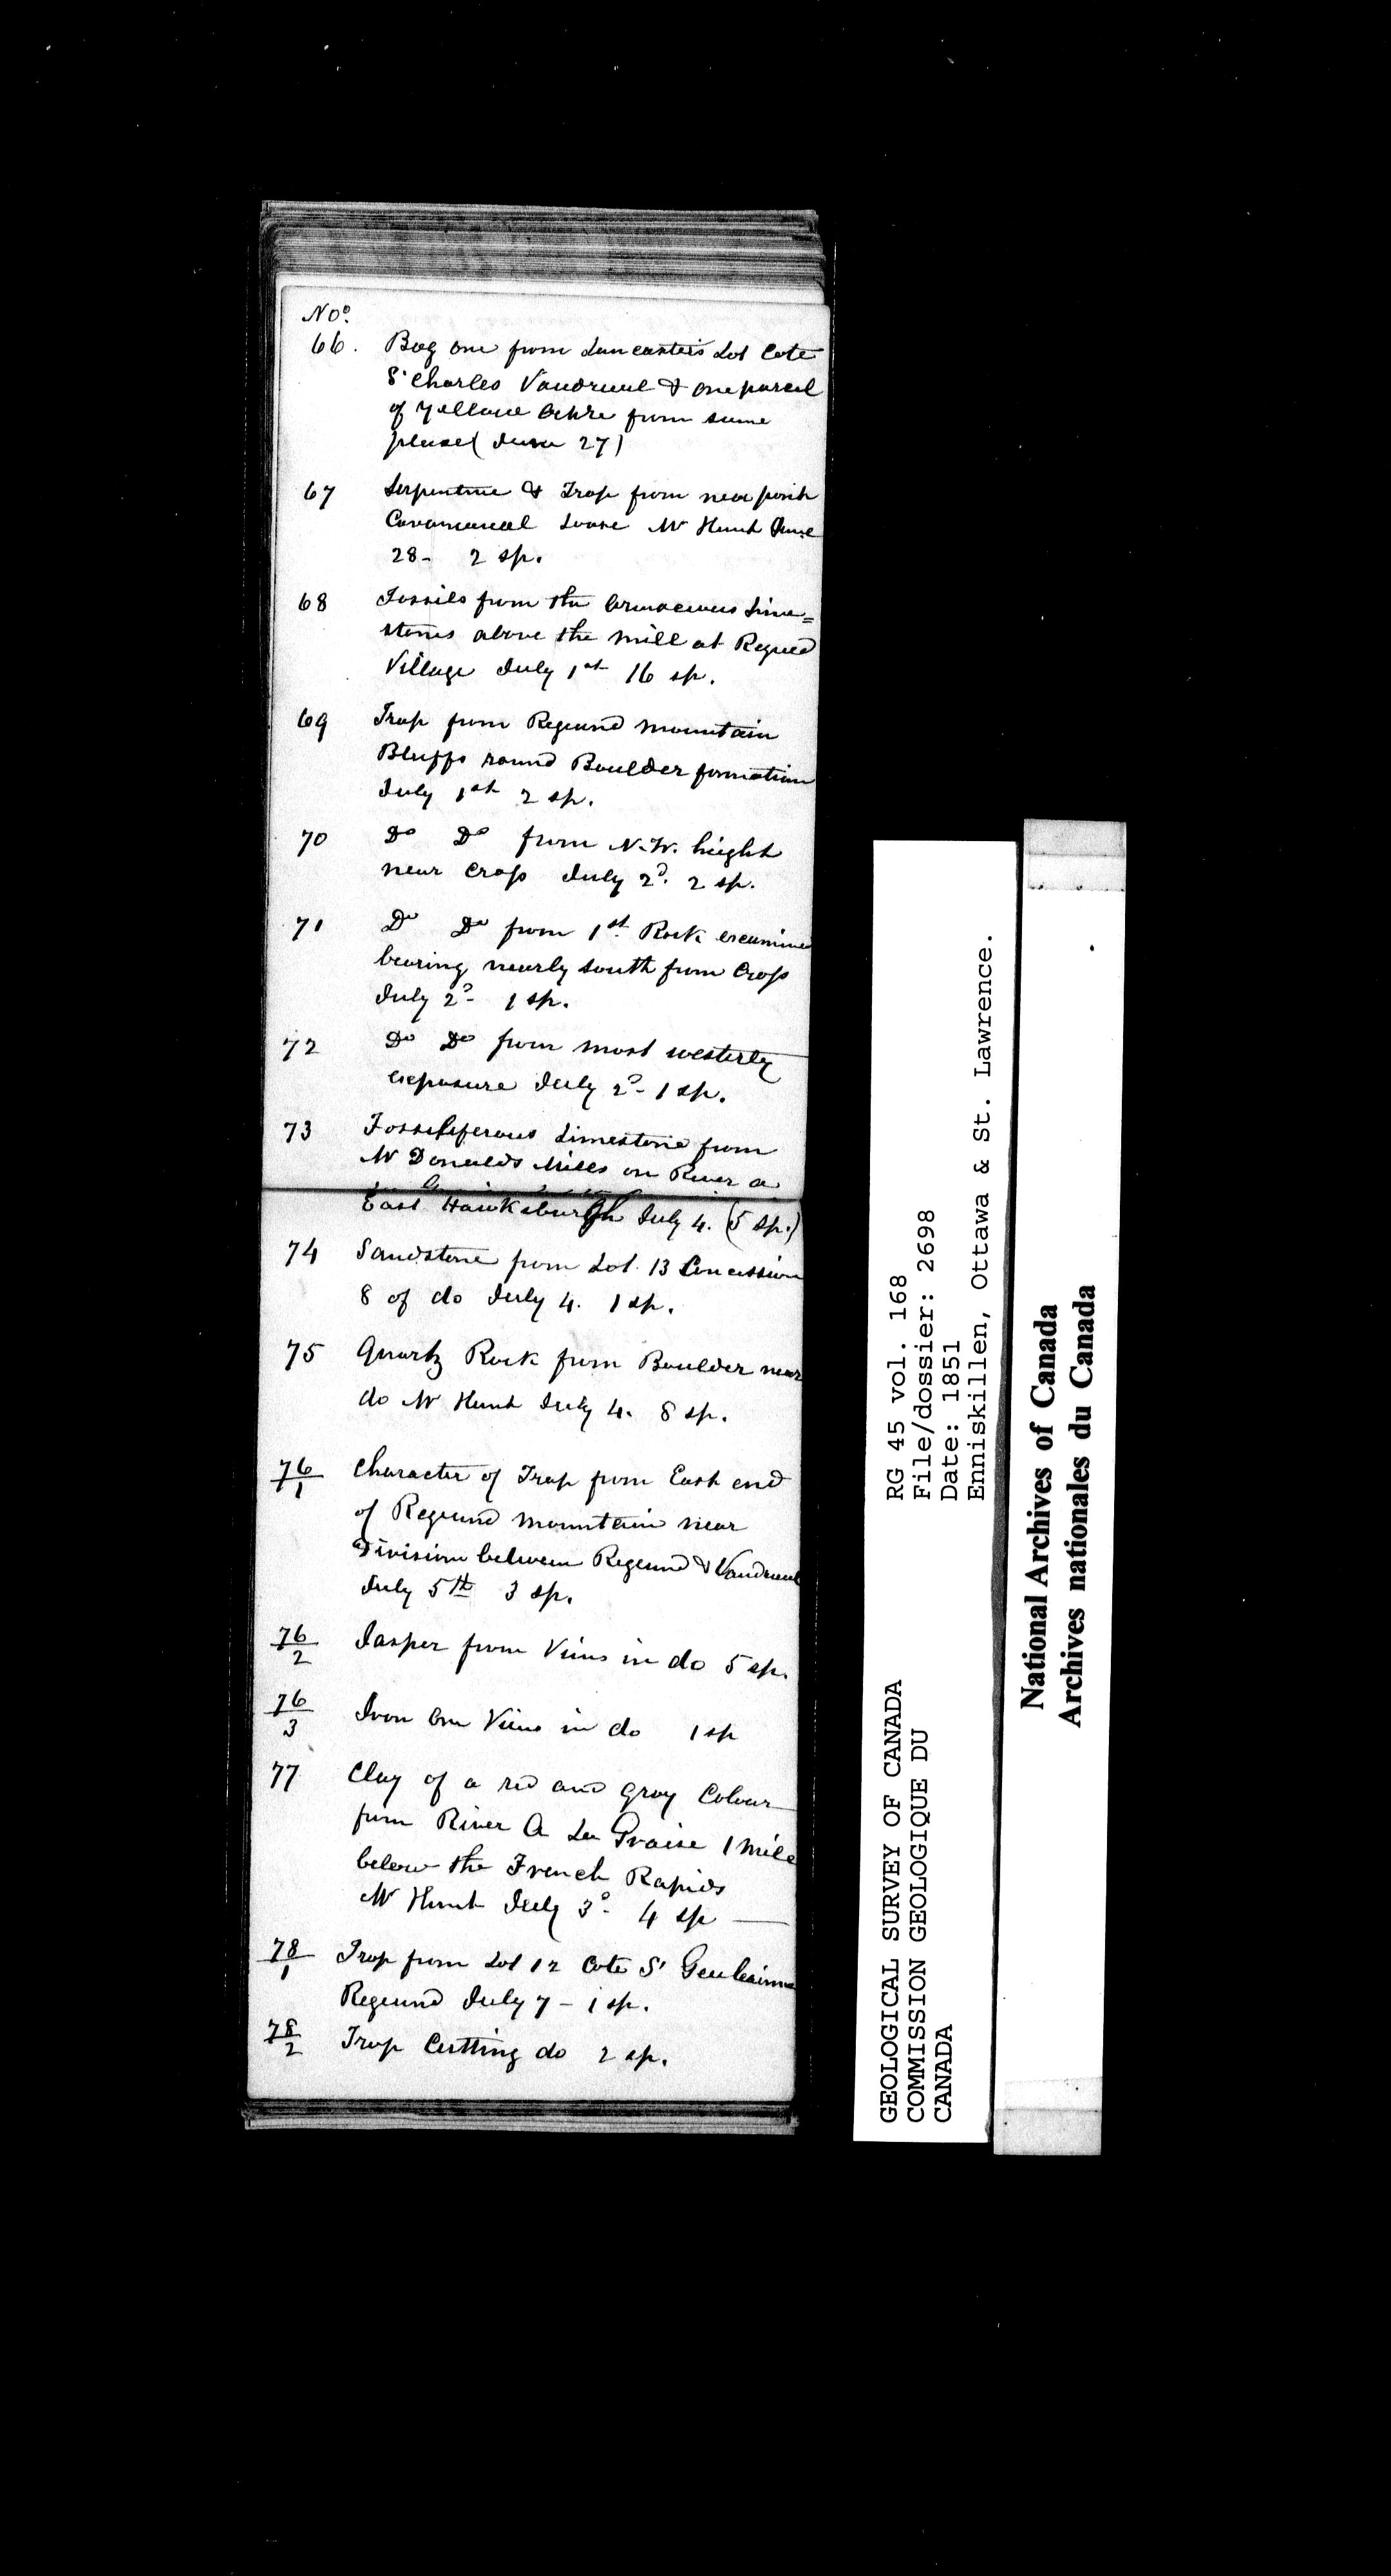 No.
66. Bog ore from Lancasters Lot Cote
St Charles Vaudreuil & one parcel
of Yellow Ochre from same
place (June 27)
67 Serpentine & Trap from near point
Cavanaual loose Mr Hunt June
28 - 2 sp.
68 Fossils from the Arenaceous Lime=
stones above the mill at Regaud
Village July 1st 16 sp.
69 Trap from Regaud Mountain
Bluffs round Boulder formation
July 1st 2 sp.
70 Do Do from N.W. height
near Cross July 2d. 2 sp.
71 Do Do from 1st. Rock examine
bearing nearly south from Cross
July 2d - 1 sp.
72 Do Do from most westerly
exposure July 2d - 1 sp.
73 Fossiliferous Limestone from
Mr Donalds Mills on River a
East Hawksburgh July 4. (5 sp.)
74 Sandstone from Lot 13 Concession
8 of do July 4. 1 sp.
75 Quartz Rock from Boulder near
do Mr Hunt July 4. 8 sp.
76/1 Character of Trap from East end
of Regaud Mountain near
Division between Regaud & Vaudreuil
July 5th 3 sp.
76/2 Jasper from Veins in do 5 sp.
76/3 Iron Ore Veins in do 1 sp
77 Clay of a red and gray Colour
from River A La Graise 1 mile
below the French Rapids
Mr Hunt July 3d. 4 sp —
78/1 Trap from Lot 12 Cote St
Regaud July 7 - 1 sp.
78/2 Trap Cutting do 2 sp.
GEOLOGICAL SURVEY OF CANADA
COMMISSION GEOLOGIQUE DU
CANADA
RG 45 vol. 168
File/dossier: 2698
Date: 1851
Enniskillen, Ottawa & St. Lawrence.
National Archives of Canada
Archives nationales du Canada